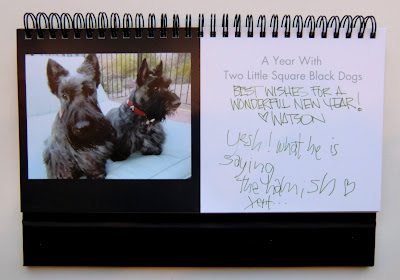 A Year With
Two Little Square Black Dogs
BEST WISHES FOR A
WONDERFUL NEW YEAR!
♡ WATSON
what he is
saying
the